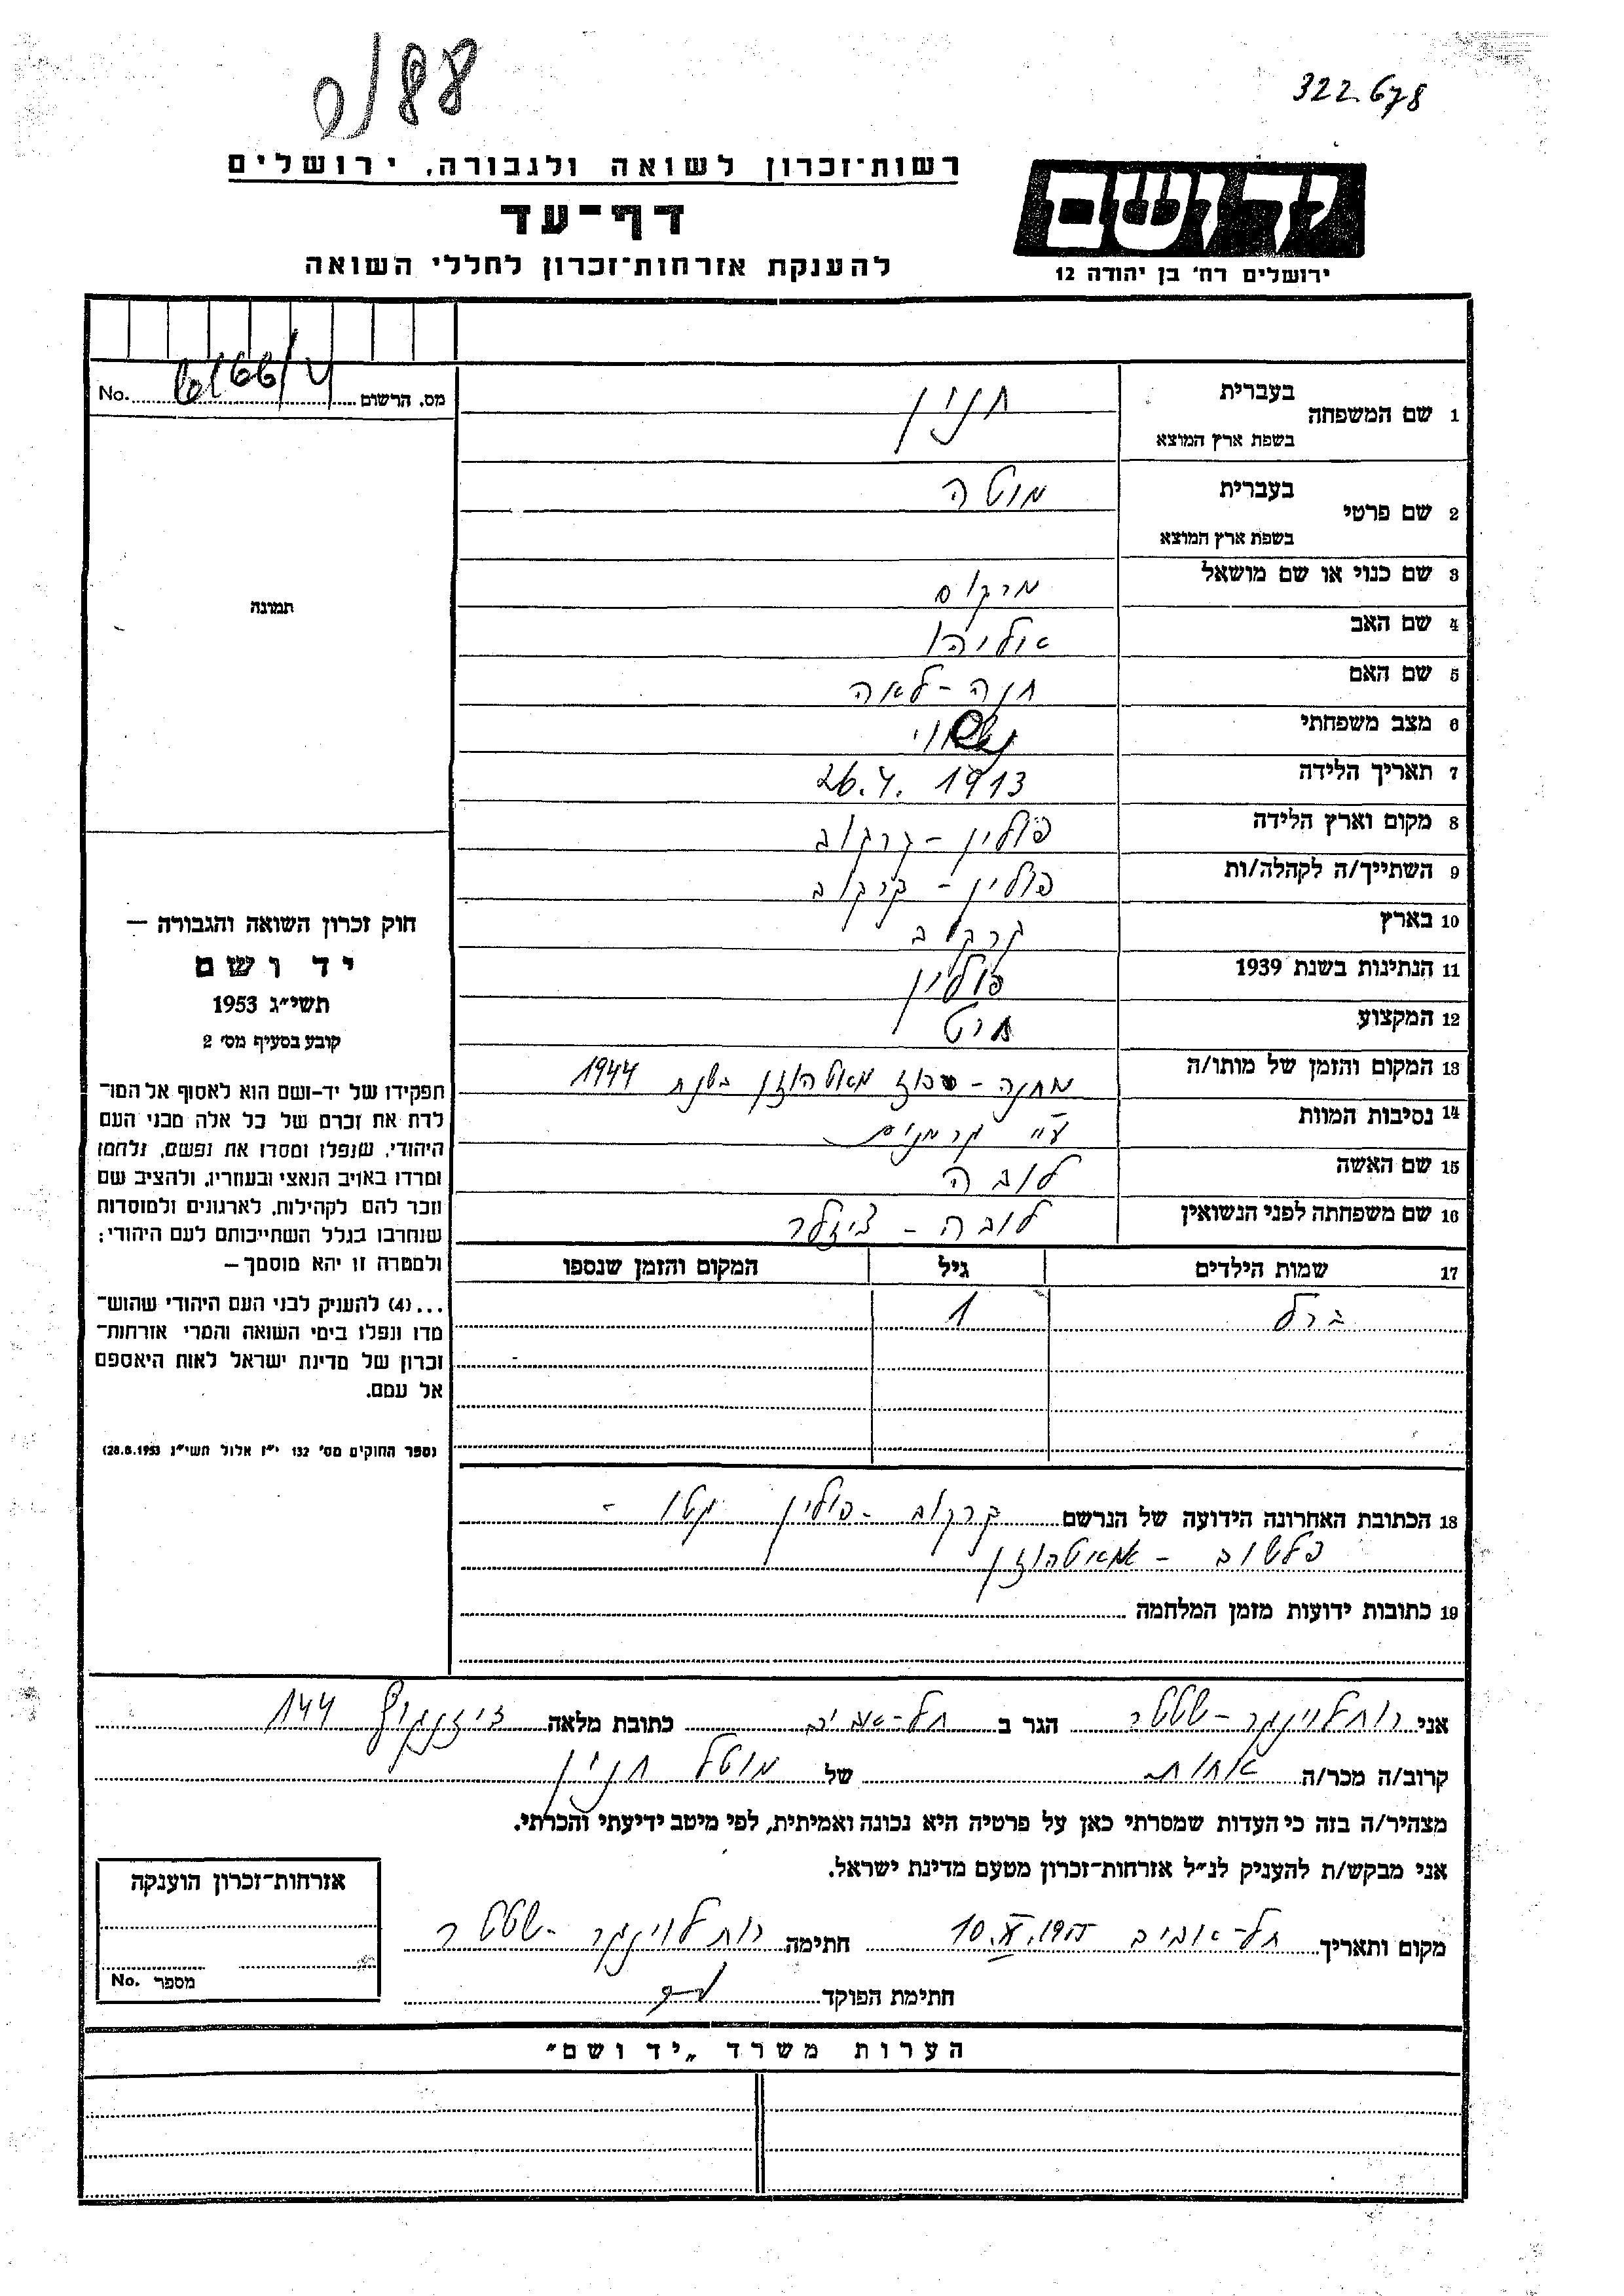 88/ס
322.678
רשות־זכרון לשואה ולגבורה, ירושלים
יד ושם
דף־עד
להענקת אזרחות־זכרון לחללי השואה
ירושלים רח' בן יהודה 12
מס. הרשום No.
1 שם המשפחה בעברית
בשפת ארץ המוצא
2 שם פרטי בעברית מוטה
בשפת ארץ המוצא
3 שם כנוי או שם מושאל מרקוס
4 שם האב אליהו
5 שם האם חנה - לאה
6 מצב משפחתי נשוי
7 תאריך הלידה 26.4.1913
8 מקום וארץ הלידה פולין - קרקוב
9 השתייך/ה לקהלה/ות פולין - קרקוב
10 בארץ קרקוב
11 הנתינות בשנת 1939 פולין
12 המקצוע
13 המקום והזמן של מותו/ה מחנה - מאוטהוזן בשנת 1944
14 נסיבות המוות ע"י גרמנים
15 שם האשה לובה
16 שם משפחתה לפני הנשואין לובה -
17 שמות הילדים גיל המקום והזמן שנספו
ברל 1
18 הכתובת האחרונה הידועה של הנרשם קרקוב - פולין גטו -
פלשוב - מאוטהוזן
19 כתובות ידועות מזמן המלחמה
תמונה
חוק זכרון השואה והגבורה —
יד ושם
תשי"ג 1953
קובע בסעיף מס' 2
תפקידו של יד-ושם הוא לאסוף אל המו־
לדת את זכרם של כל אלה מבני העם
היהודי, שנפלו ומסרו את נפשם, נלחמו
ומרדו באויב הנאצי ובעוזריו, ולהציב שם
וזכר להם לקהילות, לארגונים ולמוסדות
שנחרבו בגלל השתייכותם לעם היהודי;
ולמטרה זו יהא מוסמך—
...(4) להעניק לבני העם היהודי שהוש־
מדו ונפלו בימי השואה והמרי אזרחות־
זכרון של מדינת ישראל לאות היאספם
אל עמם.
(ספר החוקים מס' 132 י"ז אלול תשי"ג 28.8.1953)
אני רות לוינגר - הגר ב תל-אביב כתובת מלאה דיזנגוף 144
קרוב/ה מכר/ה אחות של מוטל
מצהיר/ה בזה כי העדות שמסרתי כאן על פרטיה היא נכונה ואמיתית, לפי מיטב ידיעתי והכרתי.
אני מבקש/ת להעניק לנ"ל אזרחות־זכרון מטעם מדינת ישראל.
מקום ותאריך תל-אביב 10. חתימה רות לוינגר -
חתימת הפוקד
אזרחות־זכרון הוענקה
מספר No.
הערות משרד „יד ושם"